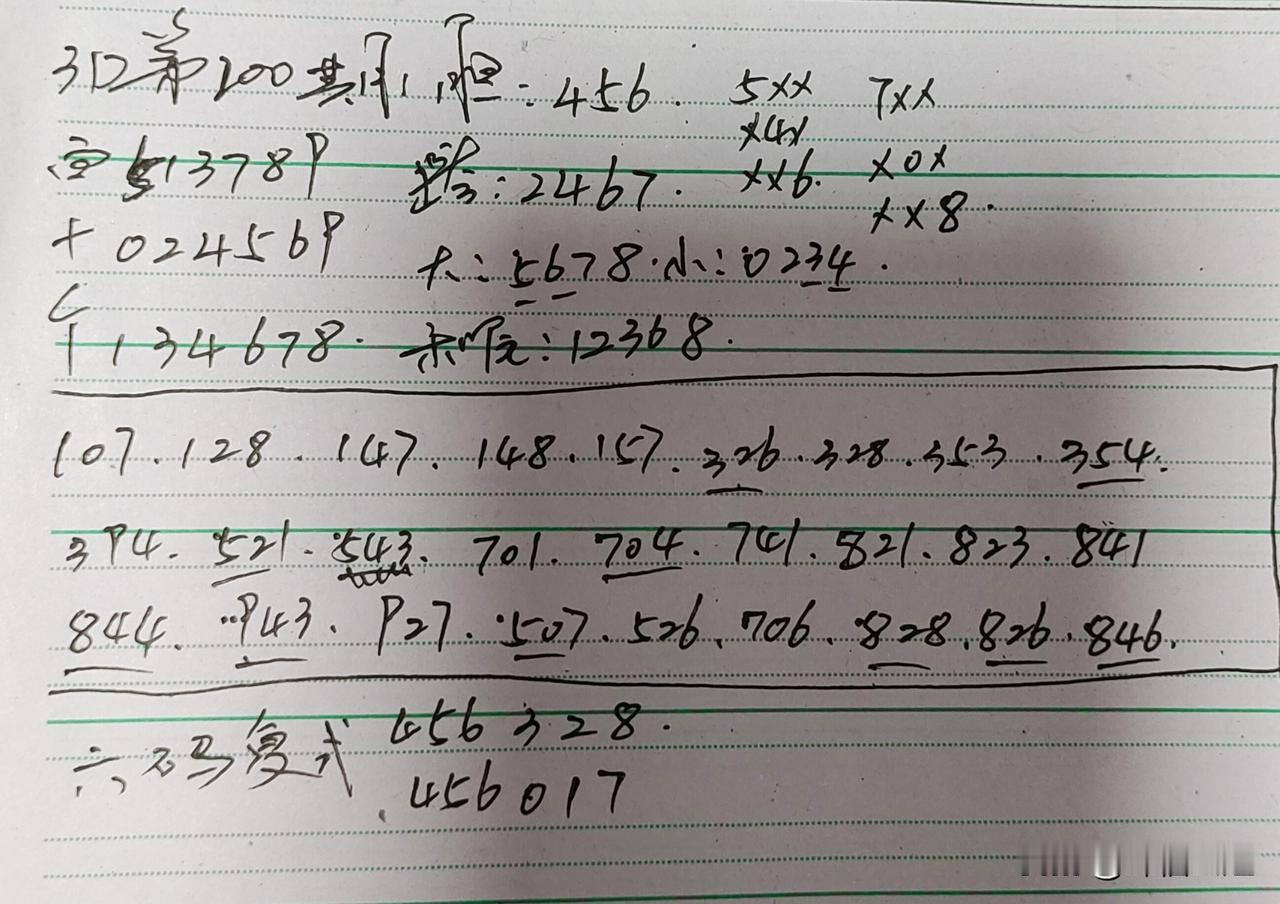 3D第200期 胆:456. 5xx 7xx
x4x
百513789 跨:2467. xx6. x0x
xx8.
十024569
大:5678.小:0234.
个134678. 和值:12368.
107.128.147.148.157.326.328.353.354.
394.521.543.701.704.741.821.823.841
844.943.927.507.526.706.828.826.846.
六码复式 456328.
456017